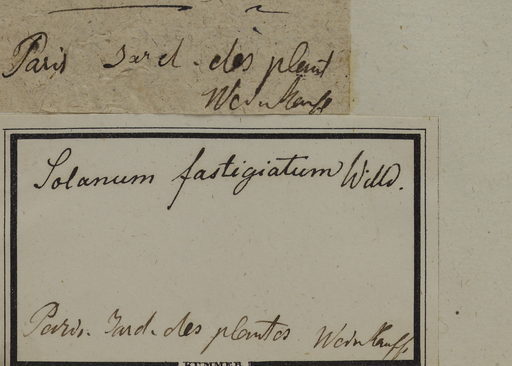 Paris Jard. des plant
Weinkauff
Solanum fastigiatum Willd.
Paris. Jard. des plantes Weinkauff
KUMMER